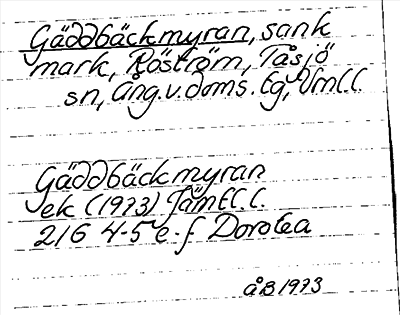 Gäddbäckmyran, sank
mark, Röström, Tåsjö
sn, Ång.v.doms. tg, Vml.l.
Gäddbäckmyran
ek (1973) Jämtl.l.
21G 4-5 e-f Dorotea
ÅB 1973